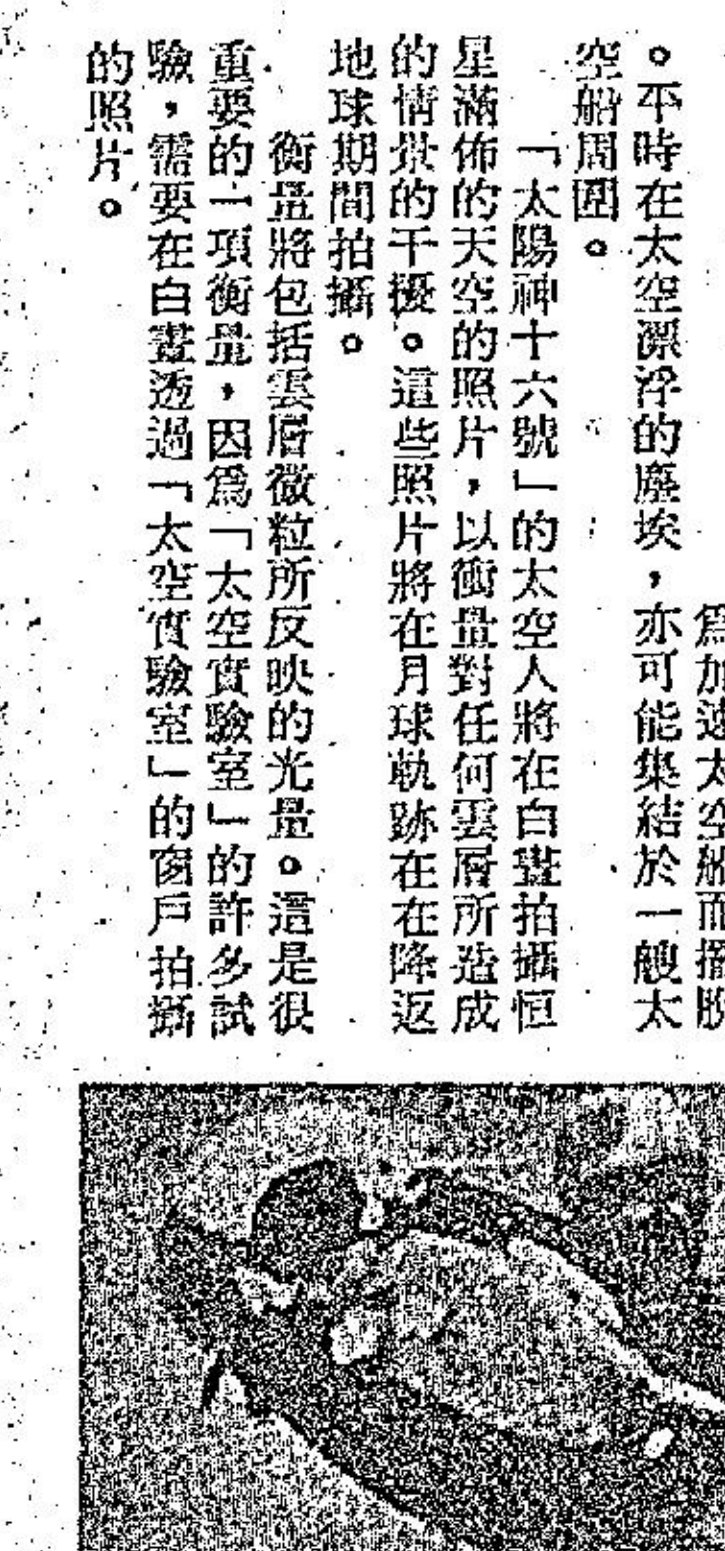 爲加速太空船而擺脫
。平時在太空漂浮的塵埃,亦可能集結於一艘太
空船周圍。
「太陽神十六號」的太空人將在白晝拍攝恒
星滿佈的天空的照片,以衡量對任何雲層所造成
的情景的干擾。這些照片將在月球軌跡在在降返
地球期間拍攝。
衡量將包括雲層微粒所反映的光量。這是很
重要的一項衡量,因爲「太空實驗室」的許多試
驗,需要在白晝透過「太空實驗室」的窗戶拍攝
的照片。